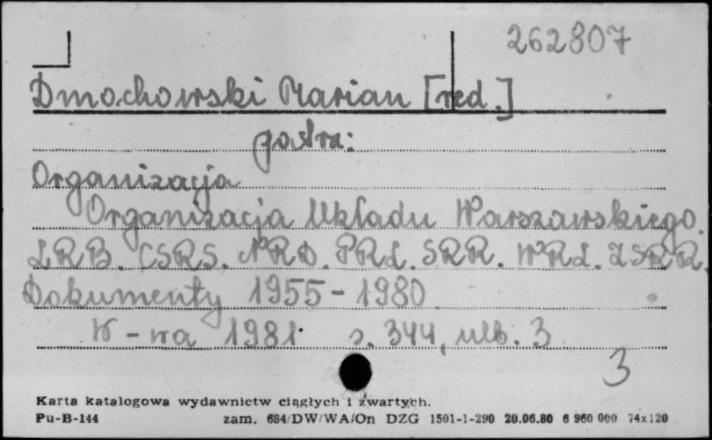 262807
Dmochowski Marian [red.]
patrz:
Organizacja
Organizacja Układu Warszawskiego.
LRB. CSRS. NRD. PRL. SRR. WRL. ZSRR.
Dokumenty 1955-1980
W-wa 1981. s. 344, nlb. 3
3
Karta katalogowa wydawnictw ciągłych i zwartych.
Pu-B-144 zam. 684/DW/WA/On DZG 1501-1-290 20.06.80 6 960 000 74x120